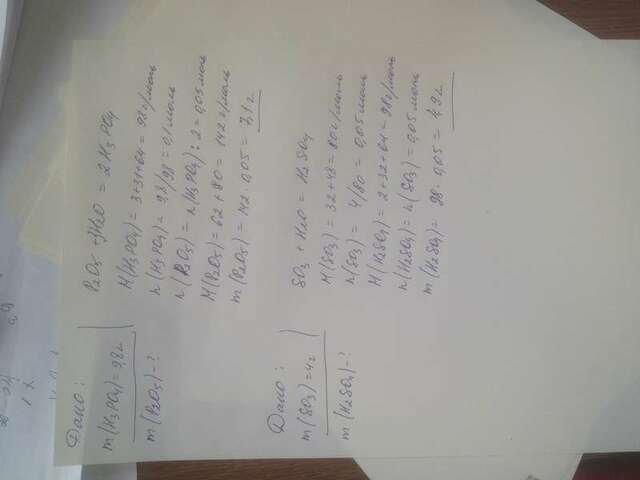 Дано:
m(H3PO4)=9,8г
m(P2O5)-?
P2O5 + 3H2O = 2H3PO4
M(H3PO4) = 3+31+64 = 98г/моль
n(H3PO4) = 9,8/98 = 0,1моль
n(P2O5) = n(H3PO4):2 = 0,05моль
M(P2O5) = 62+80 = 142г/моль
m(P2O5) = 142·0,05 = 7,1г
Дано:
m(SO3)=4г
m(H2SO4)-?
SO3 + H2O = H2SO4
M(SO3) = 32+48 = 80г/моль
n(SO3) = 4/80 = 0,05моль
M(H2SO4) = 2+32+64 = 98г/моль
n(H2SO4) = n(SO3) = 0,05моль
m(H2SO4) = 98·0,05 = 4,9г